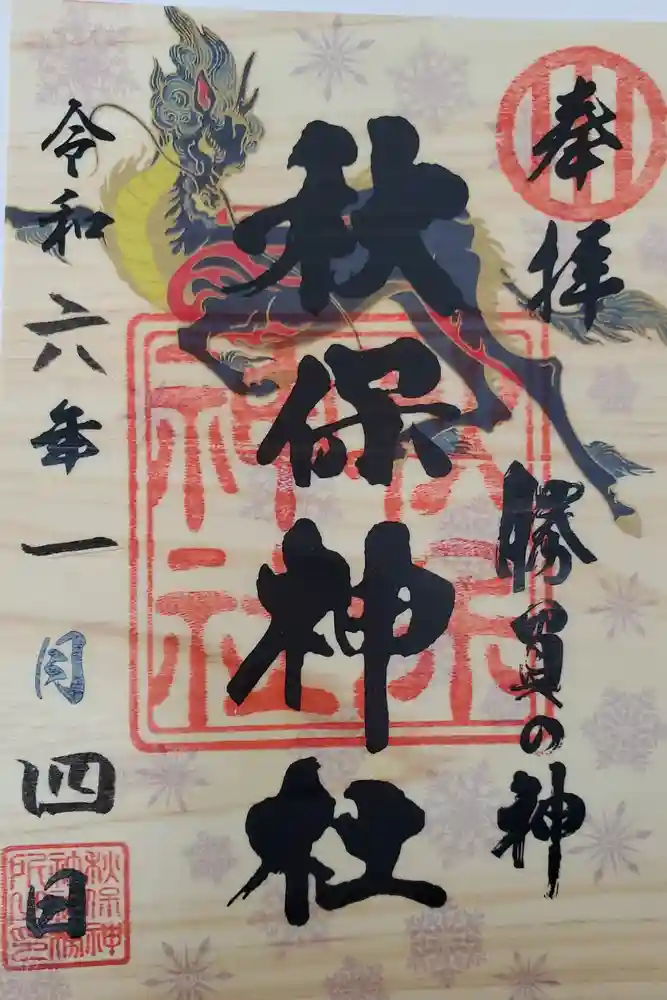 奉拝
勝負の神
秋保神社
令和六年一月四日
秋保神社